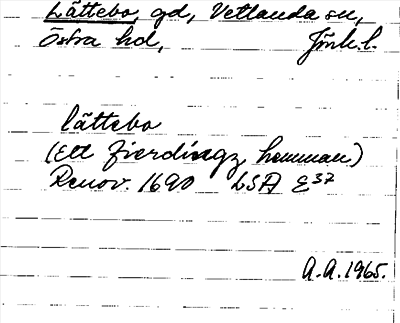 Lättebo, gd, Vetlanda sn,
Östra hd, Jönk.l.
lättebo
(Ett fierdingz hemman)
Renov. 1690 LSA E37
A.A. 1965.